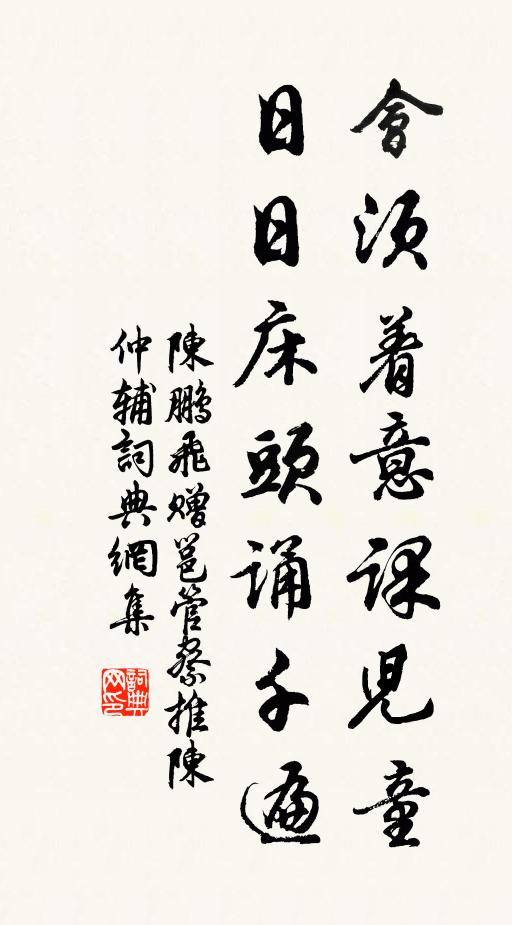 會須着意課兒童
日日床頭誦千遍
陳鵬飛贈邕管察推陳
仲輔詞典網集
詞典网印